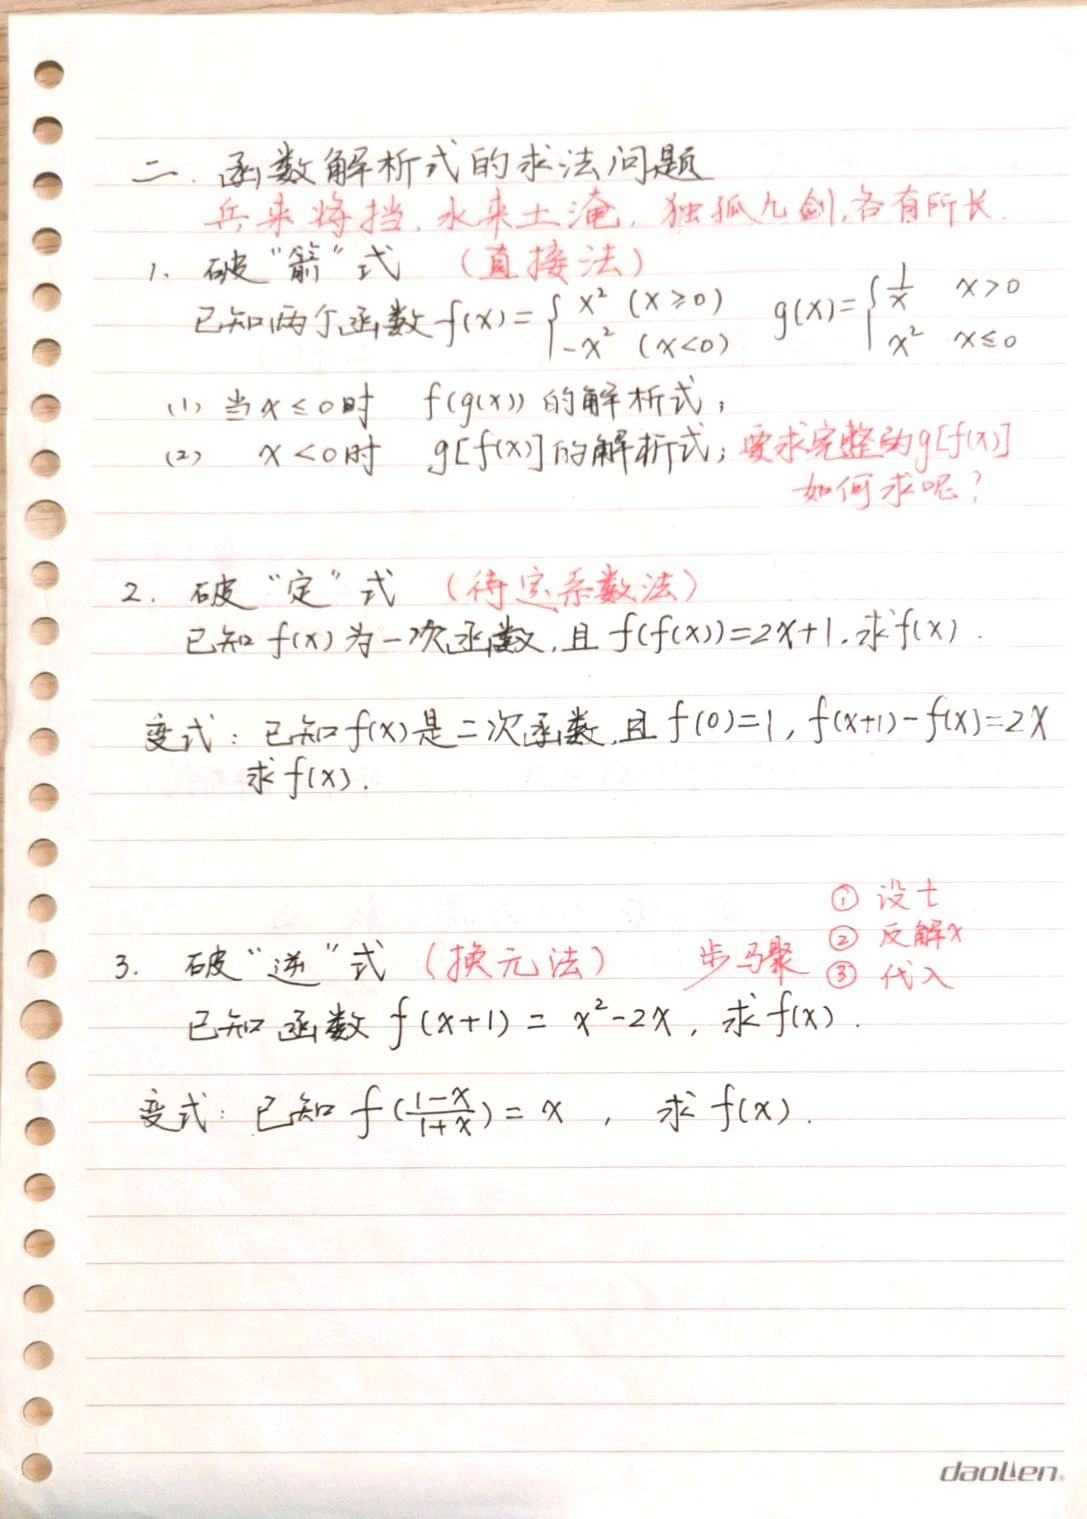 二. 函数解析式的求法问题
兵来将挡, 水来土淹, 独孤九剑, 各有所长.
1. 破“箭”式 (直接法)
已知两个函数f(x)={x² (x≥0) -x² (x<0) g(x)={1/x x>0 x² x≤0
(1) 当x≤0时 f(g(x))的解析式;
(2) x<0时 g[f(x)]的解析式; 要求完整的g[f(x)]
如何求呢?
2. 破“定”式 (待定系数法)
已知f(x)为一次函数, 且f(f(x))=2x+1. 求f(x).
变式: 已知f(x)是二次函数, 且f(0)=1, f(x+1)-f(x)=2x
求f(x).
3. 破“逆”式 (换元法) 步骤 ① 设t
② 反解x
③ 代入
已知函数f(x+1)=x²-2x, 求f(x).
变式: 已知f((1-x)/(1+x))=x, 求f(x).
daolien